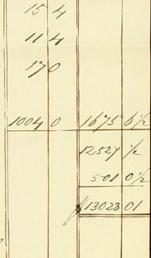 15 4
11 4
17 0
1004 0 1675 6½
12527 ½
501 0½
13028 01